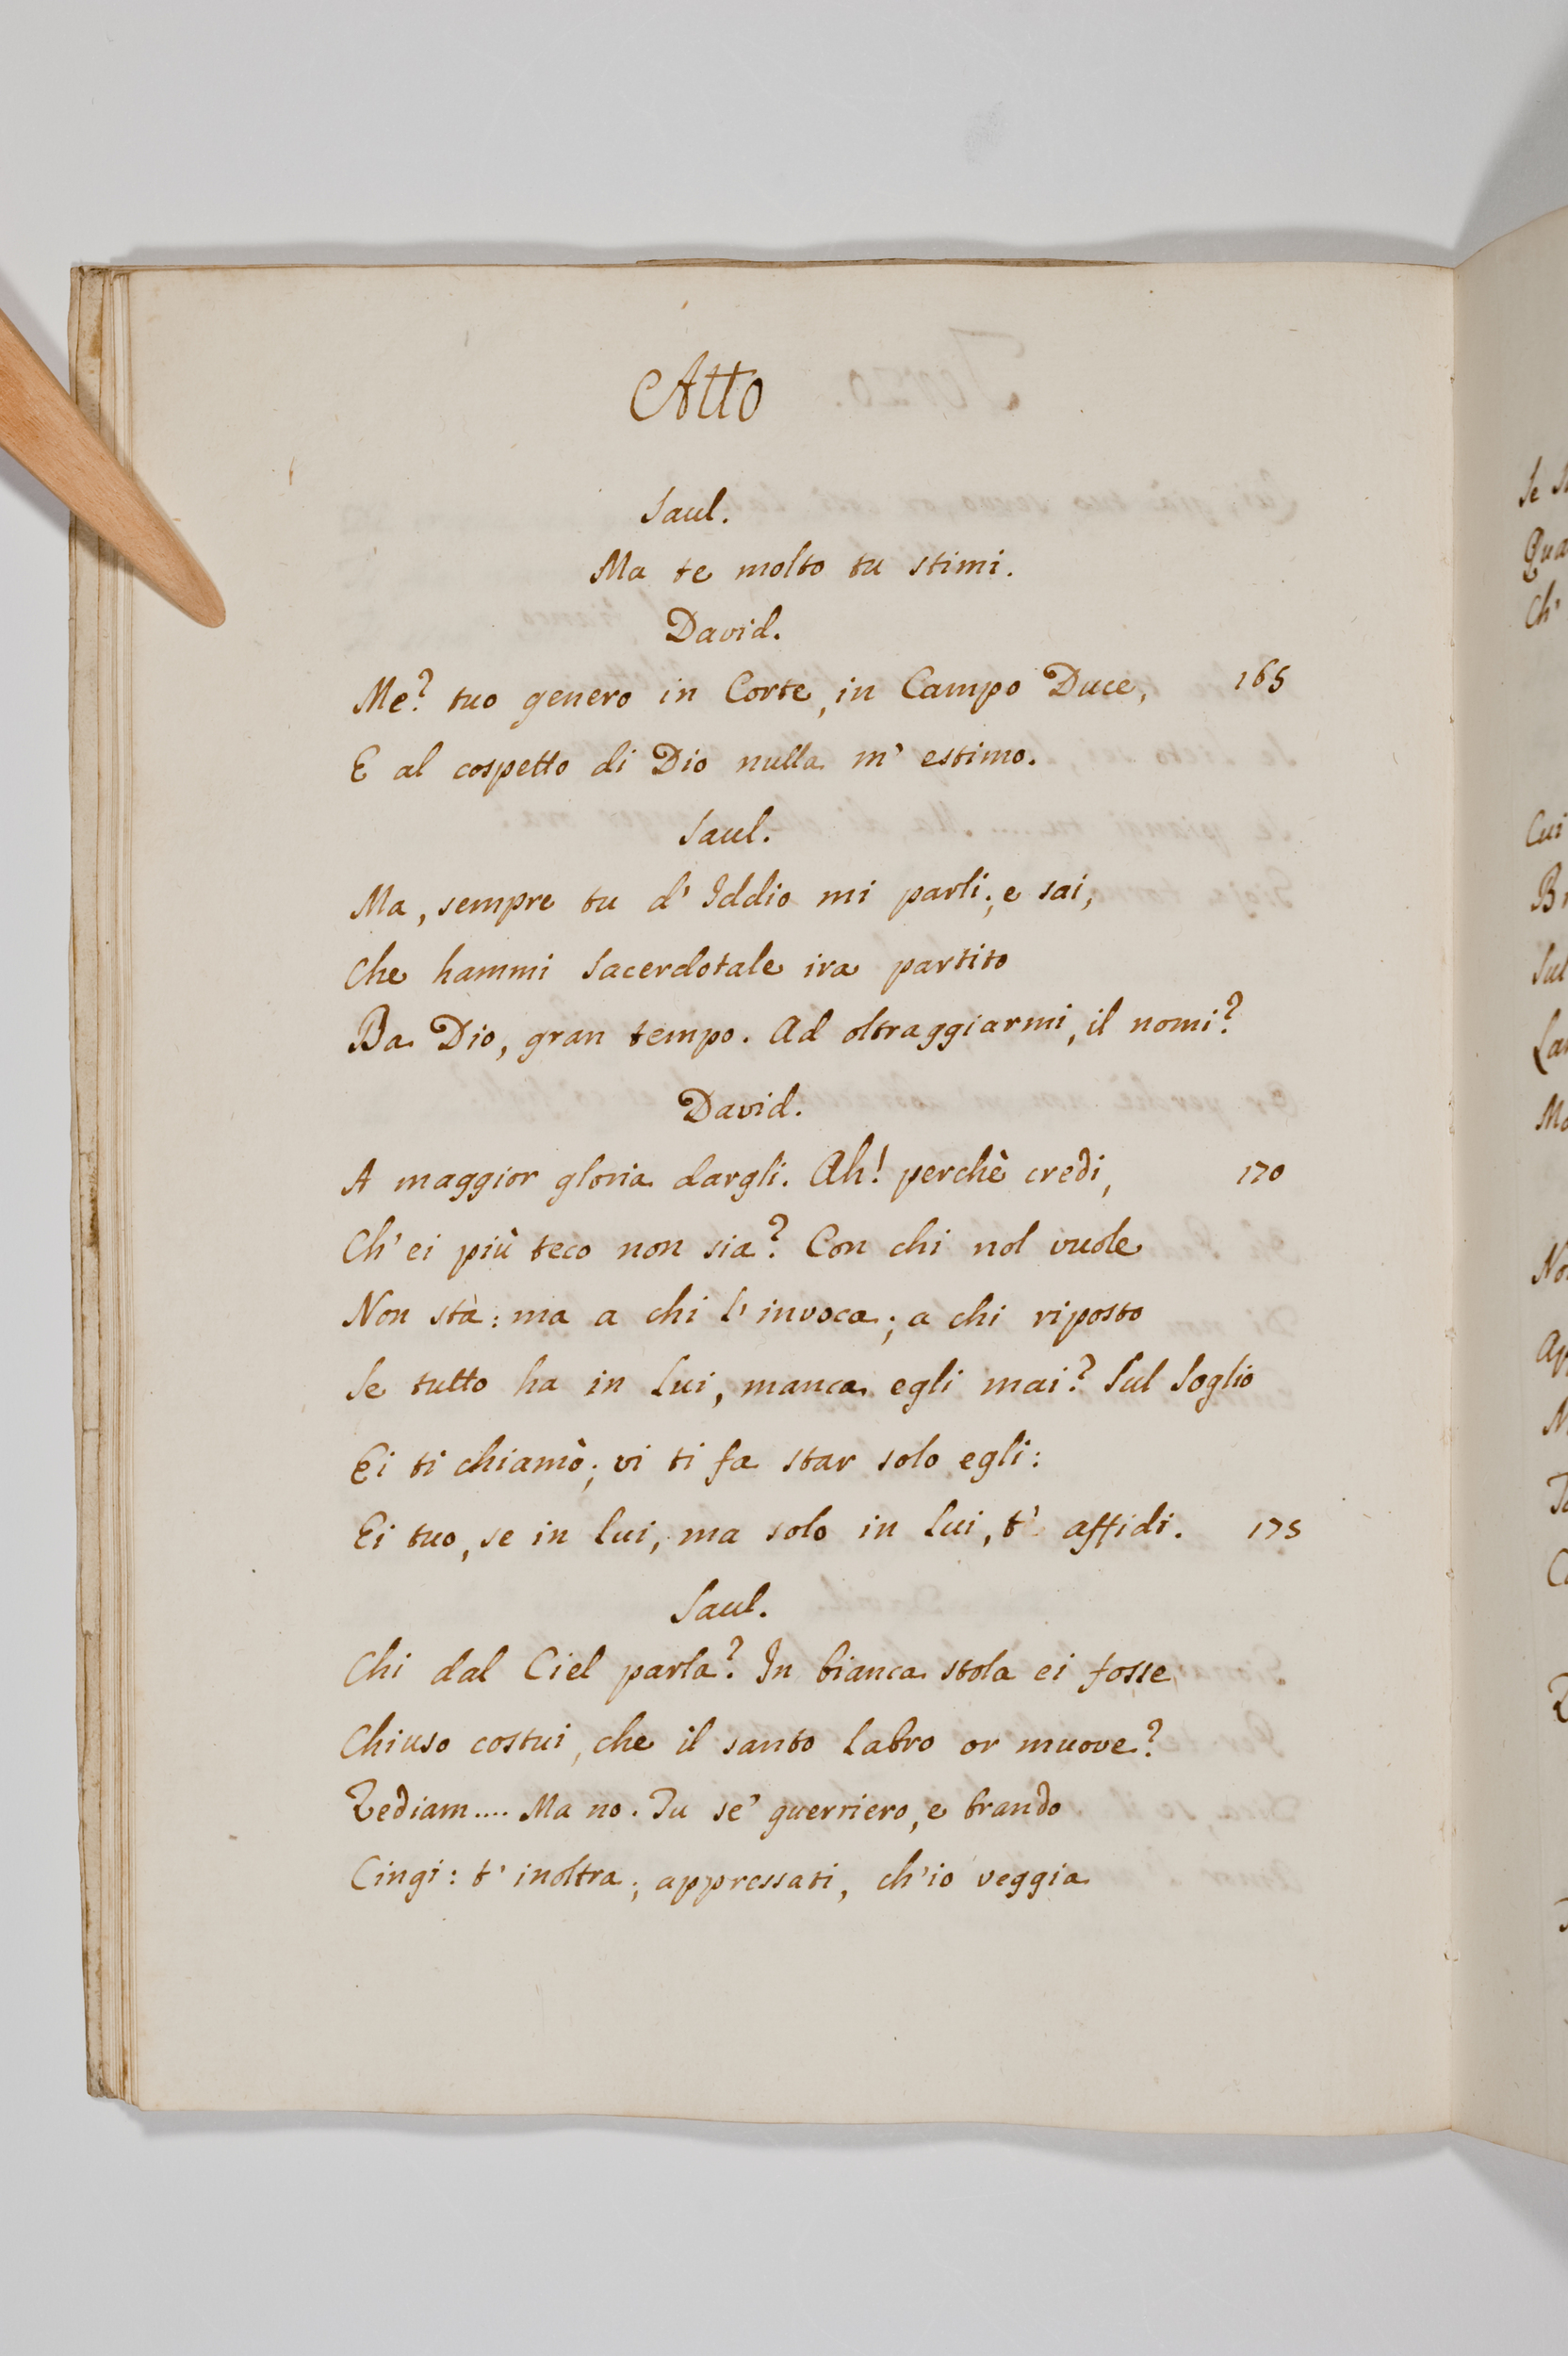 Atto
Saul.
Ma te molto tu stimi.
David.
Me? tuo genero in Corte, in Campo Duce, 165
E al cospetto di Dio nulla m' estimo.
Saul.
Ma, sempre tu d' Iddio mi parli; e sai,
Che hammi Sacerdotale ira partito
Da Dio, gran tempo. Ad oltraggiarmi, il nomi?
David.
A maggior gloria dargli. Ah! perchè credi, 170
Ch' ei più teco non sia? Con chi nol vuole
Non stà: ma a chi l' invoca; a chi riposto
Se tutto ha in Lui, manca egli mai? Sul Soglio
Ei ti chiamò; vi ti fa star solo egli:
Ei tuo, se in Lui, ma solo in Lui, t' affidi. 175
Saul.
Chi dal Ciel parla? In bianca stola ei fosse
Chiuso costui, che il santo labro or muove?
Vediam.... Ma no. Tu se' guerriero, e brando
Cingi: t' inoltra; appressati, ch' io veggia